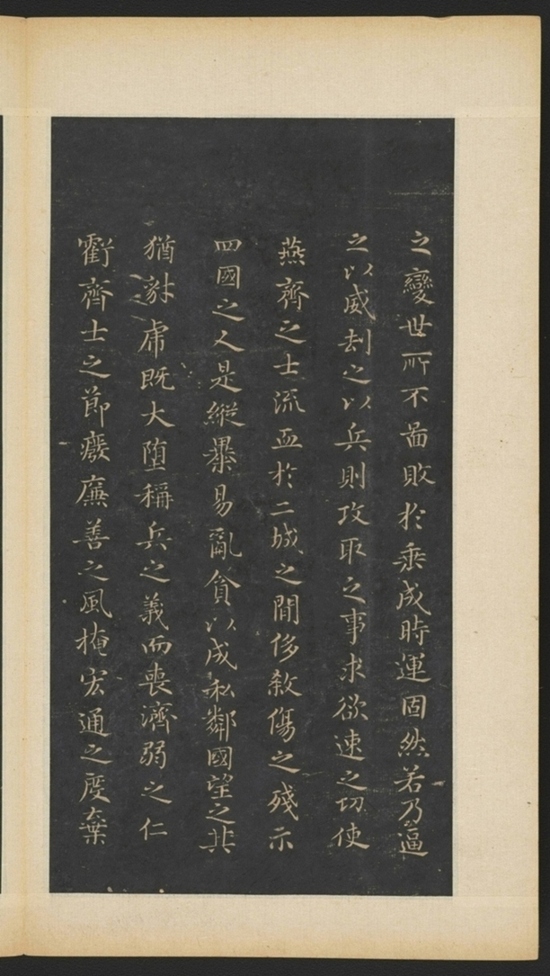 之變世所不啚敗於乘成時運固然若乃逼
之以威刧之以兵則攻取之事求欲速之功使
燕齊之士流血於二城之間侈殺傷之殘示
四國之人是縱暴易亂貪以成私鄰國望之其
猶豺虎既大堕稱兵之義而喪濟弱之仁
虧齊士之節廢廉善之風掩宏通之度棄